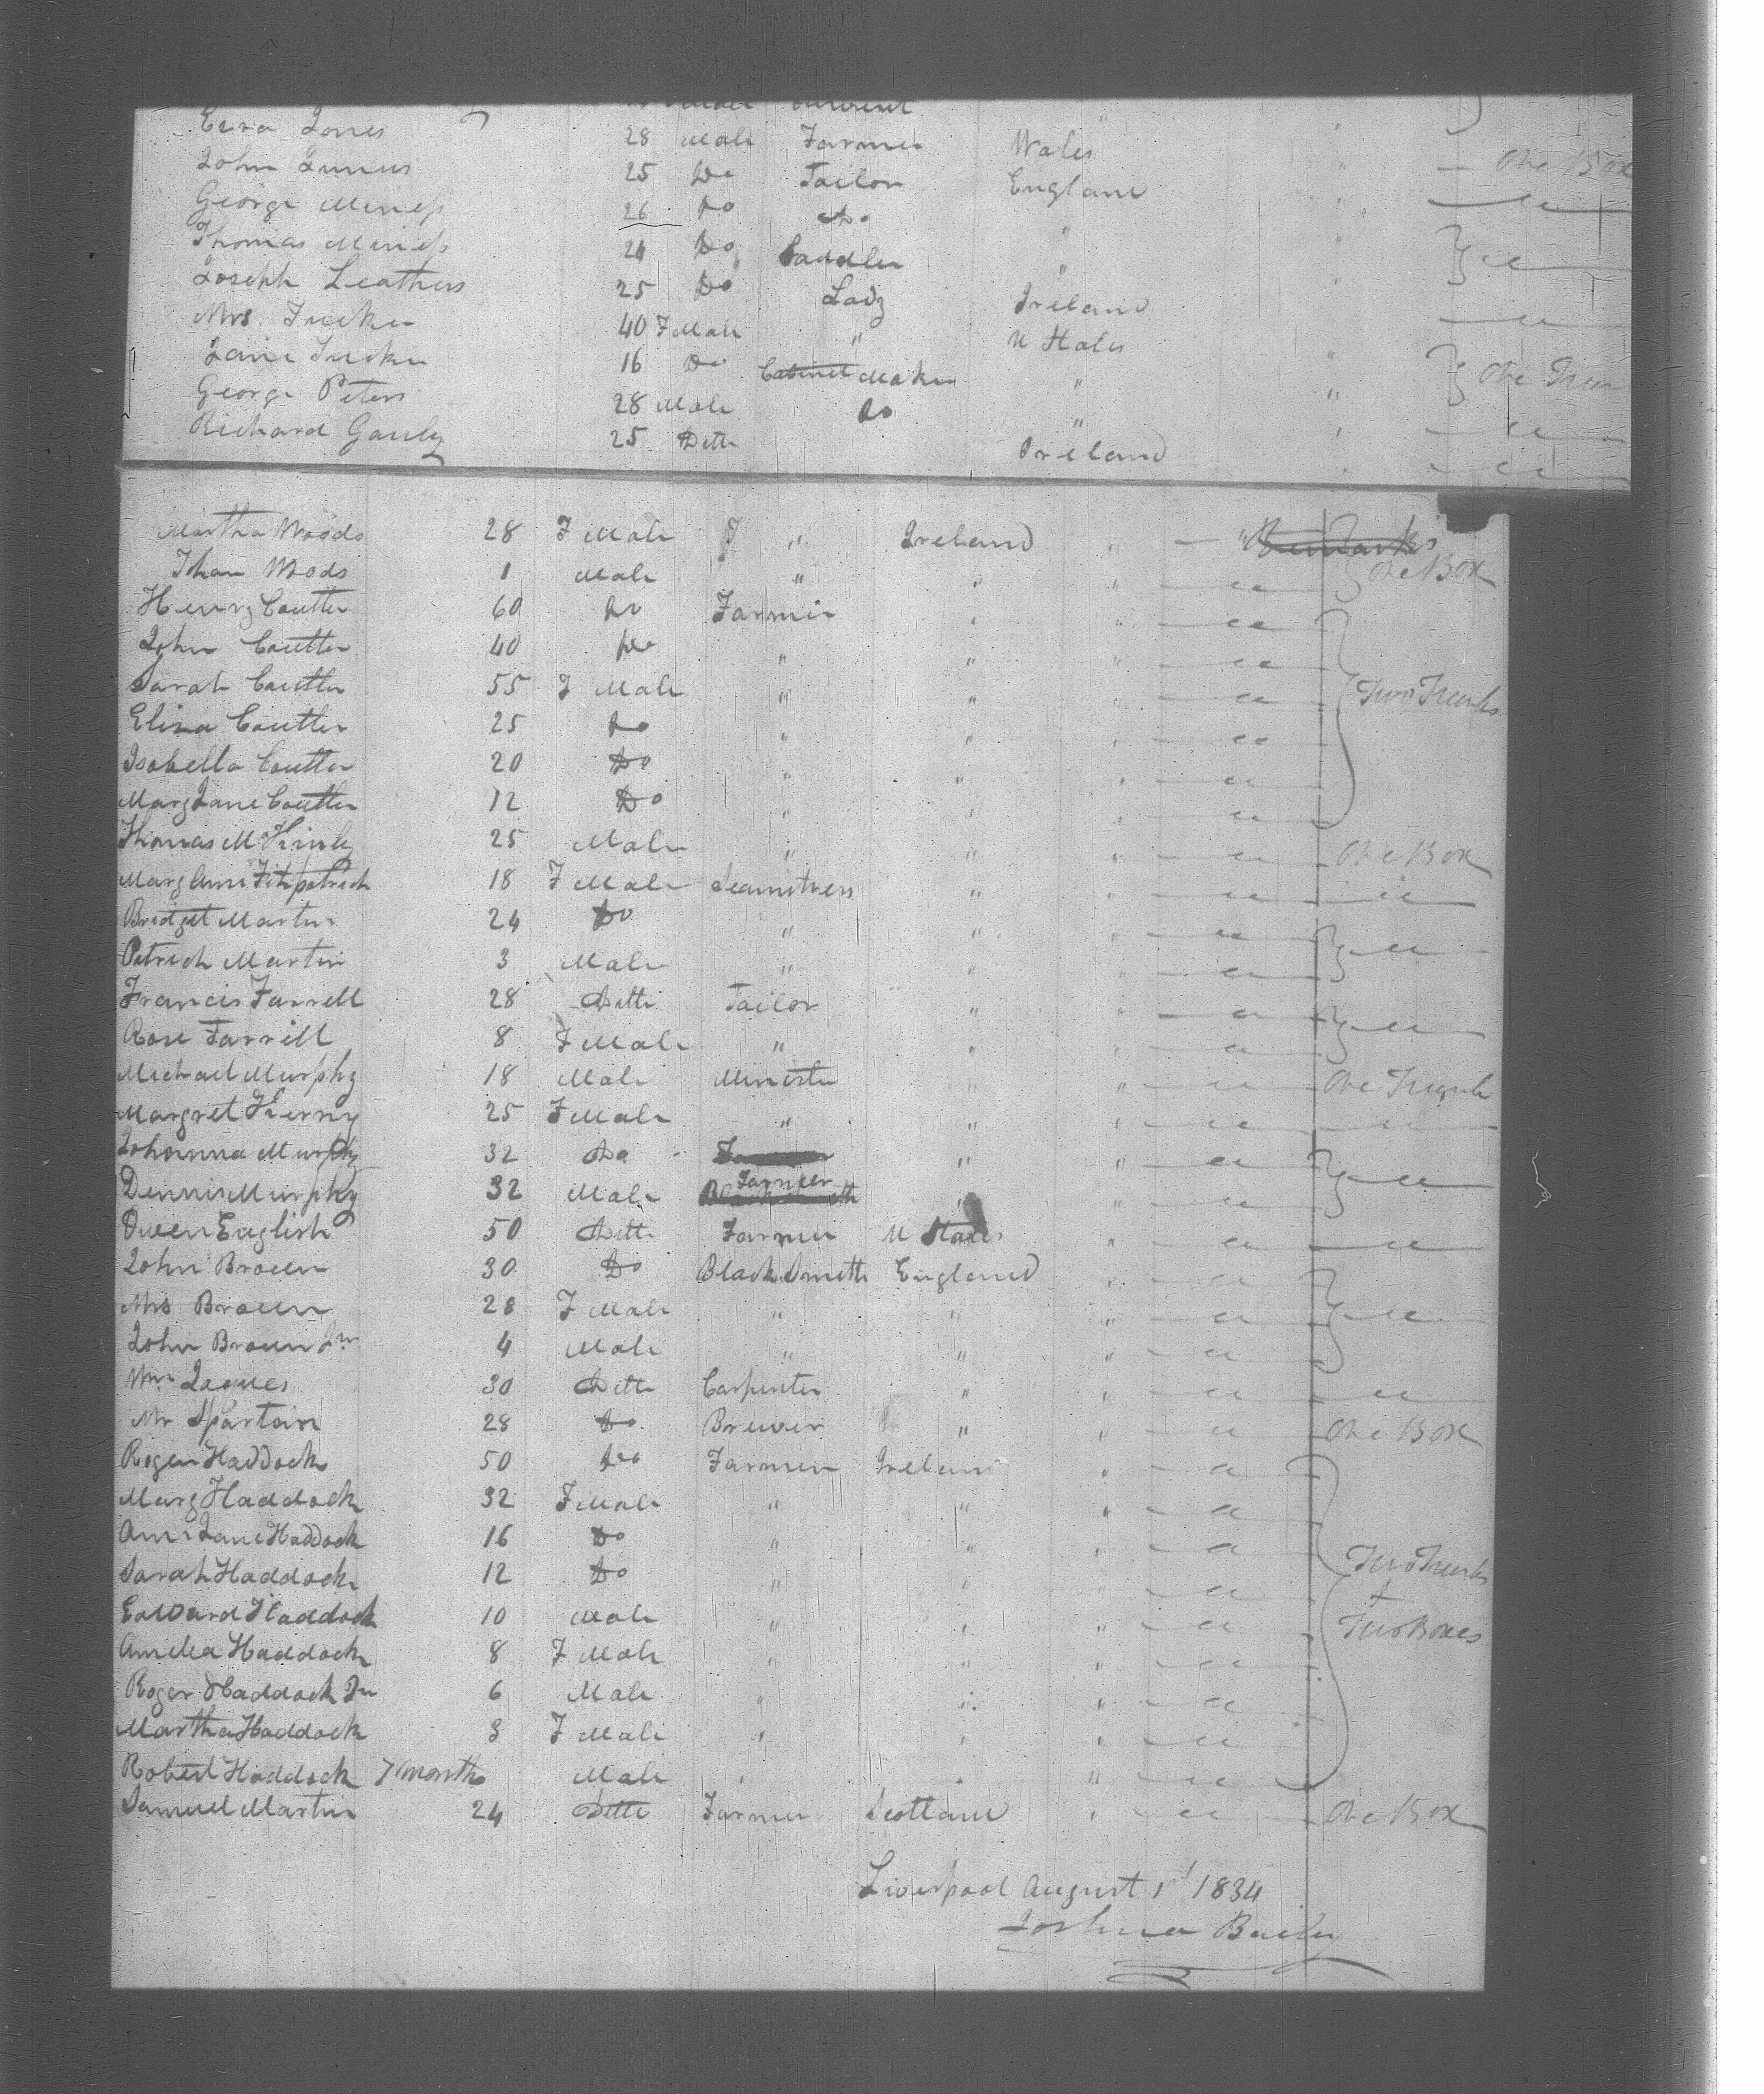 Ezra Jones 28 Male Farmer Wales " "
John 25 Do Tailor England " — One Box
George Miness 26 Do Do " " — "
Thomas Miness 24 Do Saddler " " "
Joseph Leathers 25 Do Ireland " — "
Mrs Tucker 40 F Male Lady U States "
Jane Tucker 16 Do " " " One Trun
George Peters 28 Male Cabinet Maker " " — "
Richard Gauly 25 Ditto Do Ireland " — "
Martha Woods 28 F Male " Ireland " — " Remarks
Jhon Woods 1 Male " " " — " One Box
Henry Coutter 60 Do Farmer " " — "
John Coutter 40 Do " " " — "
Sarah Coutter 55 F Male " " " — " Two Trunks
Eliza Coutter 25 Do " " " — "
Isabella Coutter 20 Do " " " — "
Mary Jane Coutter 12 Do " " " — "
Thomas McKinly 25 Male " " " — " One Box
Mary Ann Fitzpatrick 18 F Male Seamstress " " — " — "
Bridget Martin 24 Do " " " — " "
Patrick Martin 3 Male " " " — "
Francis Farrell 28 Ditto Tailor " " — " "
Rose Farrell 8 F Male " " " — "
Michael Murphy 18 Male Minister " " — " One Trunk
Margret Kierny 25 F Male " " " — " — "
Johanna Murphy 32 Do " " — " "
Dennis Murphy 32 Male Farmer " " — "
Owen English 50 Ditto Farmer U States " — " — "
John Brown 30 Do Black Smith England " — "
Mrs Brown 28 F Male " " " — " "
John Brown Jnr 4 Male " " " — "
Wm Jaques 30 Ditto Carpenter " " — " — "
Mr Spartan 28 Do Brewer " " — " One Box
Roger Haddock 50 Do Farmer Ireland " — "
Mary Haddock 32 F Male " " " — "
Ann Jane Haddock 16 Do " " " — "
Sarah Haddock 12 Do " " — " Two Trunks
Edward Haddock 10 Male " " " — " + Two Boxes
Amelia Haddock 8 F Male " " " — "
Roger Haddock Jnr 6 Male " " " — "
Martha Haddock 3 F Male " " " — "
Robert Haddock 7 Months Male " " " — "
Samuel Martin 24 Ditto Farmer Scotland " — " One Box
Liverpool August 1st 1834
Joshua Bailey